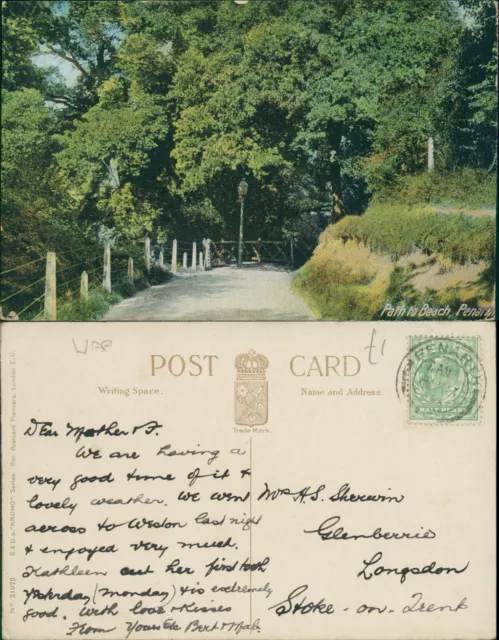 Path to Beach, Penarth
POST CARD
Writing Space.
Name and Address.
Trade Mark.
PENARTH
HALF PENNY
£1
Dear Mother & F.
We are having a
very good time of it &
lovely weather. We went
across to Weston last night
& enjoyed very much.
Kathleen cut her first tooth
yesterday (monday) & is extremely
good. With love & Kisses
From Yours Etc Bert & Mab.
Mrs H.S. Sherwin
Glenberrie
Longsdon
Stoke-on-Trent
B & D's "KROMO" Series.
London E.C.